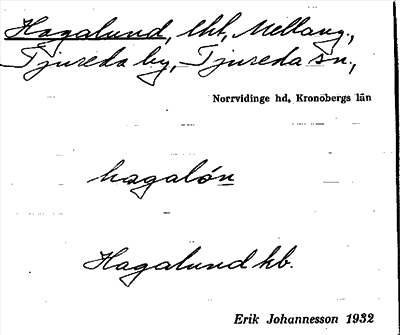 Hagalund, lht, Mellang.,
Tjureda by, Tjureda sn.,
Norrvidinge hd, Kronobergs län
hagalón
Hagalund kb.
Erik Johannesson 1932